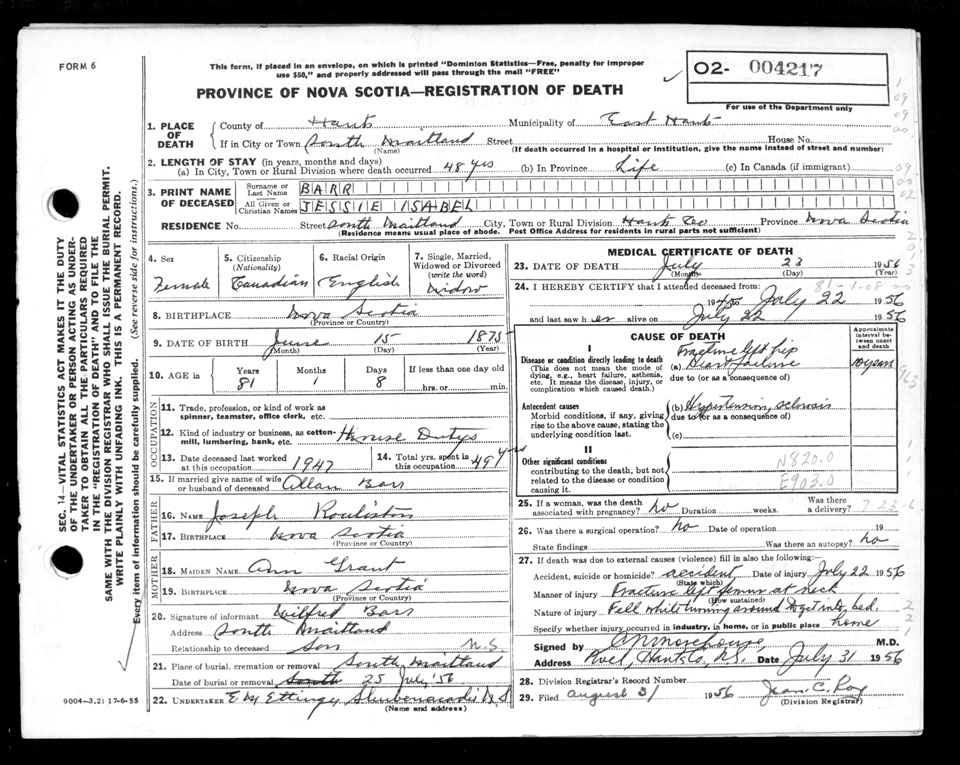 FORM 6
This form, if placed in an envelope, on which is printed "Dominion Statistics—Free, penalty for improper
use $50," and properly addressed will pass through the mail "FREE"
O2- 004217
PROVINCE OF NOVA SCOTIA—REGISTRATION OF DEATH
For use of the Department only
1. PLACE OF DEATH County of Hants Municipality of East Hants
If in City or Town South Maitland Street House No.
(Name) (If death occurred in a hospital or institution, give the name instead of street and number)
2. LENGTH OF STAY (in years, months and days)
(a) In City, Town or Rural Division where death occurred 48 yrs (b) In Province Life (c) In Canada (if immigrant)
3. PRINT NAME OF DECEASED Surname or Last Name BARR
All Given or Christian Names JESSIE ISABEL
RESIDENCE No. Street South Maitland City, Town or Rural Division Hants Co Province Nova Scotia
(Residence means usual place of abode. Post Office Address for residents in rural parts not sufficient)
4. Sex Female
5. Citizenship (Nationality) Canadian
6. Racial Origin English
7. Single, Married, Widowed or Divorced (write the word) Widow
8. BIRTHPLACE Nova Scotia
(Province or Country)
9. DATE OF BIRTH June 15 1875
(Month) (Day) (Year)
10. AGE in Years Months Days If less than one day old
81 1 8 hrs. or min.
OCCUPATION
11. Trade, profession, or kind of work as spinner, teamster, office clerk, etc.
12. Kind of industry or business, as cotton-mill, lumbering, bank, etc. House Dutys
13. Date deceased last worked at this occupation 1947
14. Total yrs. spent in this occupation 49 yrs
15. If married give name of wife or husband of deceased Allan Barr
FATHER
16. NAME Joseph Rouliston
17. BIRTHPLACE Nova Scotia
(Province or Country)
MOTHER
18. MAIDEN NAME Ann Grant
19. BIRTHPLACE Nova Scotia
(Province or Country)
20. Signature of informant Wilfred Barr
Address South Maitland
Relationship to deceased Son N.S.
21. Place of burial, cremation or removal South Maitland
Date of burial or removal South 25 July '56
22. UNDERTAKER Ettinger Shubenacadie N.S.
(Name and address)
MEDICAL CERTIFICATE OF DEATH
23. DATE OF DEATH July 23 1956
(Month) (Day) (Year)
81-1-08
24. I HEREBY CERTIFY that I attended deceased from:
July 22 1956
and last saw her alive on July 22 1956
CAUSE OF DEATH
Approximate interval between onset and death
I
Disease or condition directly leading to death
(This does not mean the mode of dying, e.g., heart failure, asthenia, etc. It means the disease, injury, or complication which caused death.)
Fracture left hip
(a) Heart failure 10 years
due to (or as a consequence of)
Antecedent causes
Morbid conditions, if any, giving rise to the above cause, stating the underlying condition last.
(b) Hypertension, sclerosis
due to (or as a consequence of)
(c)
II
Other significant conditions
contributing to the death, but not related to the disease or condition causing it.
N820.0
E902.0
25. If a woman, was the death associated with pregnancy? no Duration weeks. Was there a delivery?
26. Was there a surgical operation? no Date of operation 19
State findings Was there an autopsy? no
27. If death was due to external causes (violence) fill in also the following:—
Accident, suicide or homicide? accident Date of injury July 22 1956
(State which)
Manner of injury Fracture left femur at neck
(How sustained)
Nature of injury Fell while turning around to get into bed.
Specify whether injury occurred in industry, in home, or in public place home
Signed by Morehouse M.D.
Address Noel, Hants Co, N.S. Date July 31 1956
28. Division Registrar's Record Number
29. Filed August 31 1956 Jean C. Roy
(Division Registrar)
SEC. 14—VITAL STATISTICS ACT MAKES IT THE DUTY
OF THE UNDERTAKER OR PERSON ACTING AS UNDER-
TAKER TO OBTAIN ALL THE PARTICULARS REQUIRED
IN THE "REGISTRATION OF DEATH" AND TO FILE THE
SAME WITH THE DIVISION REGISTRAR WHO SHALL ISSUE THE BURIAL PERMIT.
WRITE PLAINLY WITH UNFADING INK. THIS IS A PERMANENT RECORD.
Every item of information should be carefully supplied. (See reverse side for instructions.)
9004—3.2: 17-6-55